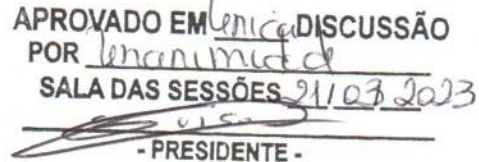 APROVADO EM única DISCUSSÃO
POR unanimidade
SALA DAS SESSÕES 21/03 2023
- PRESIDENTE -